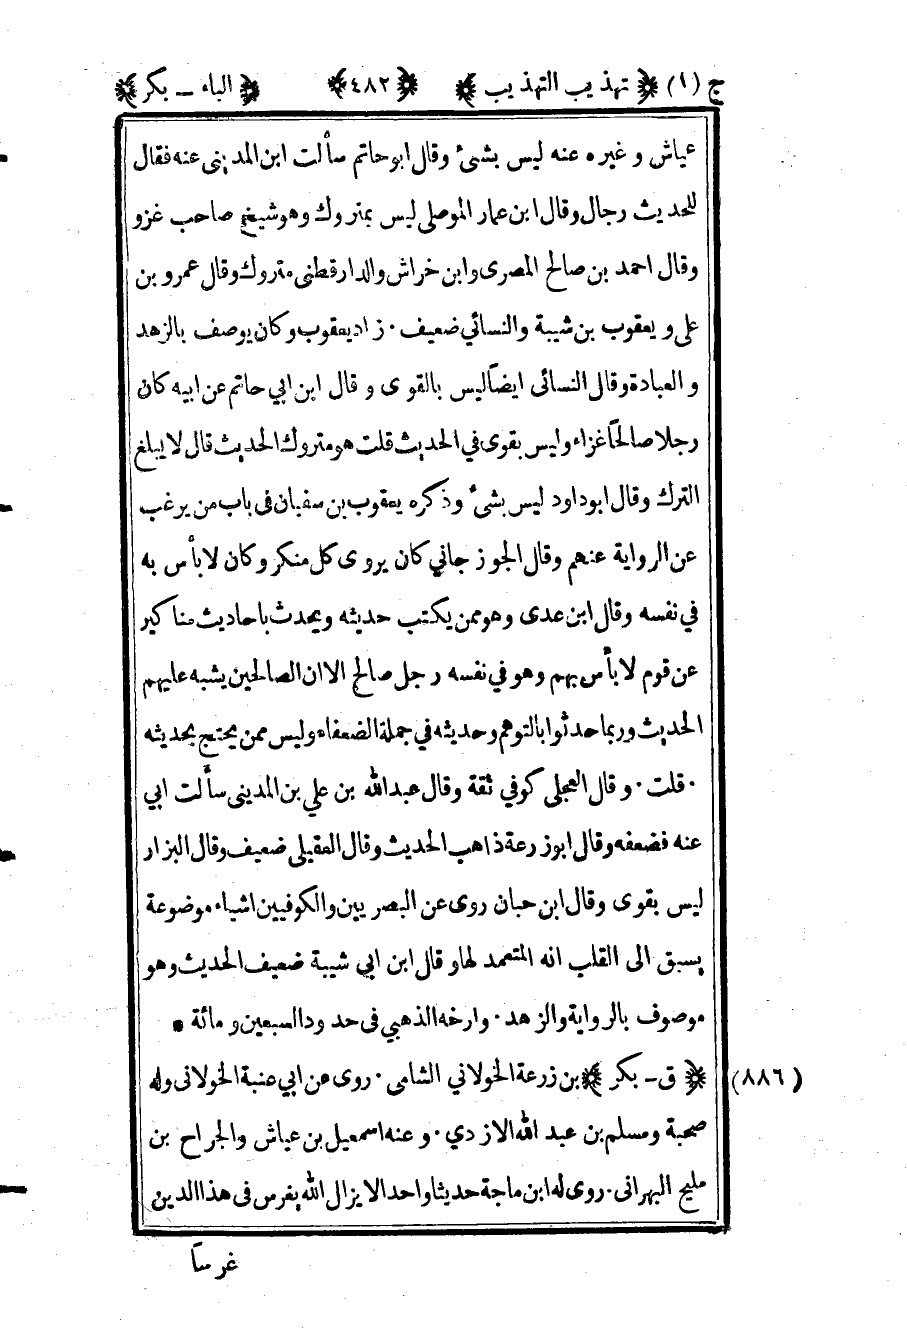 ج (١) ﴿ تهذيب التهذيب ﴾ ﴿٤٨٢﴾ ﴿ الباء ـ بكر ﴾
عياش و غيره عنه ليس بشئ وقال ابو حاتم سألت ابن المديني عنه فقال
للحديث رجال وقال ابن عمار الموصلي ليس بمتروك وهو شيخ صاحب غزو
وقال احمد بن صالح المصرى وابن خراش والدارقطنى متروك وقال عمرو بن
على و يعقوب بن شيبة والنسائي ضعيف . زاد يعقوب وكان يوصف بالزهد
و العبادة وقال النسائى ايضاً ليس بالقوى و قال ابن ابي حاتم عن ابيه كان
رجلا صالحاً غزاء وليس بقوى في الحديث قلت هو متروك الحديث قال لا يبلغ
الترك وقال ابوداود ليس بشئ وذكره يعقوب بن سفيان فى باب من يرغب
عن الرواية عنهم وقال الجوزجاني كان يروى كل منكر وكان لا بأس به
في نفسه وقال ابن عدى وهو ممن يكتب حديثه ويحدث باحاديث مناكير
عن قوم لا بأس بهم وهو في نفسه رجل صالح الا ان الصالحين يشبه عليهم
الحديث وربما حدثوا بالتوهم وحديثه في جملة الضعفاء وليس ممن يحتج بحديثه
. قلت . و قال العجلى كوفي ثقة وقال عبدالله بن علي بن المديني سألت ابي
عنه فضعفه وقال ابو زرعة ذاهب الحديث وقال العقيلى ضعيف وقال البزار
ليس بقوى وقال ابن حبان روى عن البصريين والكوفيين اشياء موضوعة
يسبق الى القلب انه المتعمد لها وقال ابن ابي شيبة ضعيف الحديث وهو
موصوف بالرواية والزهد . وارخه الذهبي فى حدود السبعين و مائة *
(٨٨٦) ﴿ ق ـ بكر ﴾ بن زرعة الخولاني الشامى . روى عن ابي عنبة الخولانى وله
صحبة ومسلم بن عبد الله الازدي . و عنه اسمعيل بن عياش والجراح بن
مليح البهرانى . روى له ابن ماجة حديثا واحدا لا يزال الله يغرس فى هذا الدين
غرساً